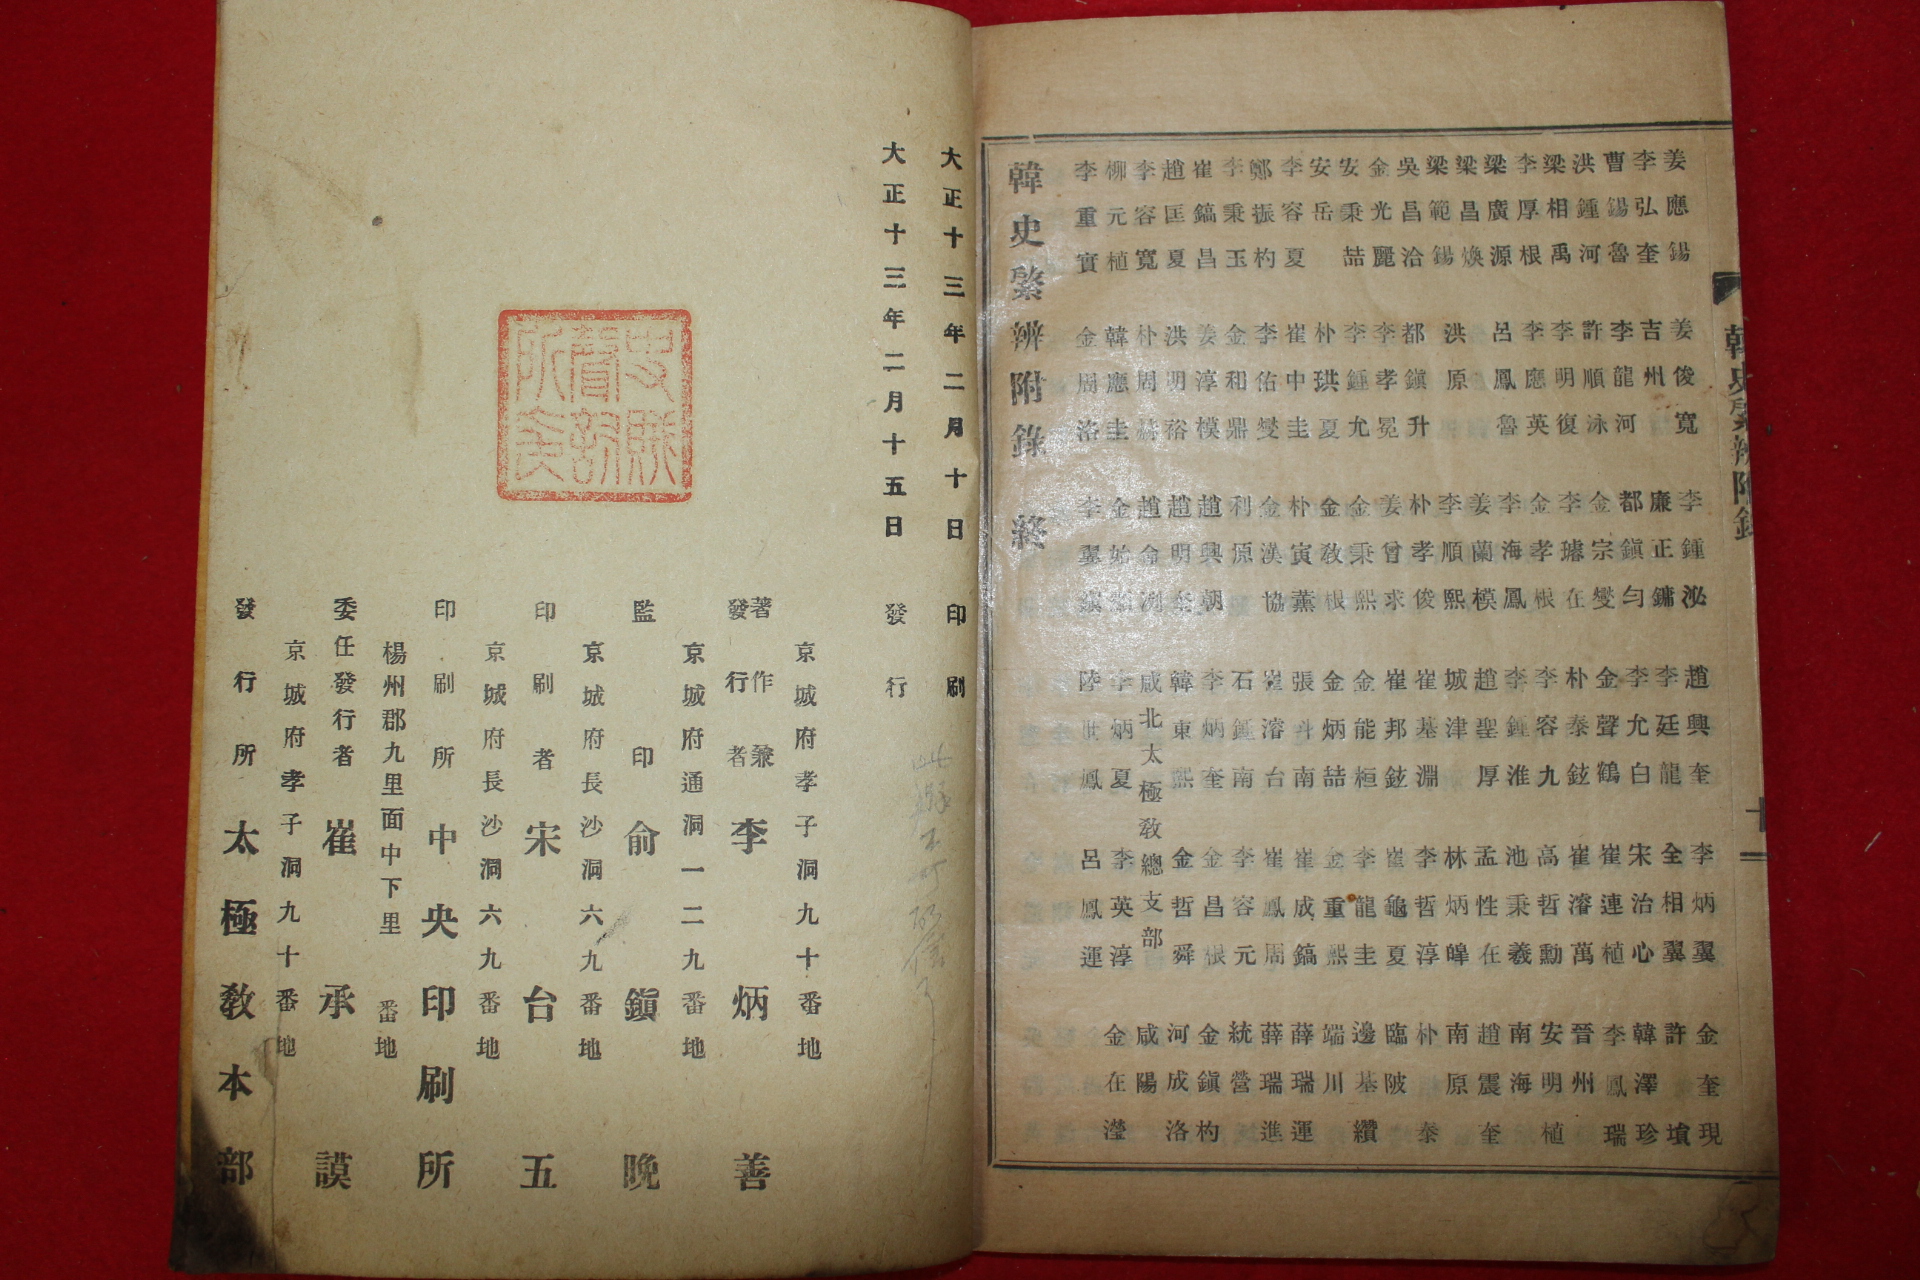 韓史綮辨附錄
十
姜應錫 姜俊寬 李鍾泌 趙興奎 李炳翼 金奎現
李弘奎 吉州 廉正鏞 李廷龍 全相翼 許墳
曹錫魯 李龍河 都鎭勻 李允白 宋治心 韓澤珍
洪鍾河 許順泳 金宗燮 金聲鶴 崔連植 李鳳瑞
梁相禹 李明復 李璩在 朴泰鉉 崔濬萬 晉州
李厚根 李應英 金孝根 李容九 高哲勳 安明植
梁廣源 呂鳳魯 李海鳳 李鍾淮 池秉羲 南海
梁昌煥 洪原 姜蘭模 趙聖厚 孟性在 趙震奎
梁範錫 李順熙 城津 林炳皥 南原
吳昌洽 都鎭升 朴孝俊 崔基淵 李哲淳 朴泰
金光麗 李孝冕 姜曾求 崔邦鉉 崔龜夏 臨陂
安秉喆 李鍾允 金秉熙 金能桓 李龍圭 邊基纘
安岳 朴珙夏 金敎根 金炳喆 金重熙 端川
李容夏 崔中圭 朴寅薰 張斗南 崔成鎬 薛瑞運
鄭振杓 李佑燮 金漢協 崔濬台 崔鳳周 薛瑞進
李秉玉 金和鼎 利原 石鍾南 李容元 統營
崔鎬昌 姜淳模 趙興朝 李炳奎 金昌根 金鎭杓
趙匡夏 洪明裕 趙明奎 韓東熙 金哲舜 河成洛
李容寬 朴周赫 趙命洌 咸北太極敎總支部 咸陽
柳元植 韓應圭 金始 李炳夏 李英淳 金在瀅
李重實 金周洛 李翼 陸世鳳 呂鳳運
韓史綮辨附錄終
大正十三年二月十日 印刷
大正十三年二月十五日 發行
京城府孝子洞九十番地
著作兼發行者 李炳善
京城府通洞一二九番地
監印 俞鎭晚
京城府長沙洞六九番地
印刷者 宋台五
京城府長沙洞六九番地
印刷所 中央印刷所
楊州郡九里面中下里 番地
委任發行者 崔承謨
京城府孝子洞九十番地
發行所 太極敎本部